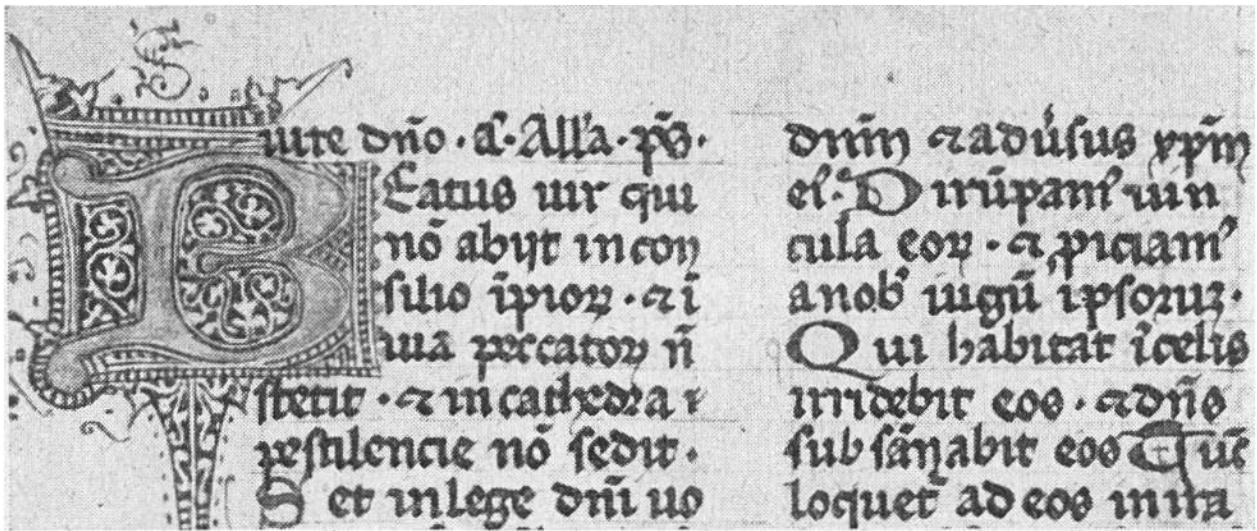 iuite dn̄o · a͛. All'a · ps̄ ·
BEatus uir qui
nō abijt in con
silio īpioꝝ · ⁊ ī
uia peccatoꝝ n̄
stetit · ⁊ in cathedra
pestilencie nō sedit ·
S et in lege dn̄i uo
dnīm ⁊ aduͥsus xpīm
ei᷒ · D irūpam᷒ uin
cula eoꝝ · ⁊ ꝓiciam᷒
a nob᷒ iugū ipsoruꝫ ·
Q ui habitat ī celis
irridebit eos · ⁊ dn̄s
subsānabit eos Tūc
loquet᷑ ad eos in ira